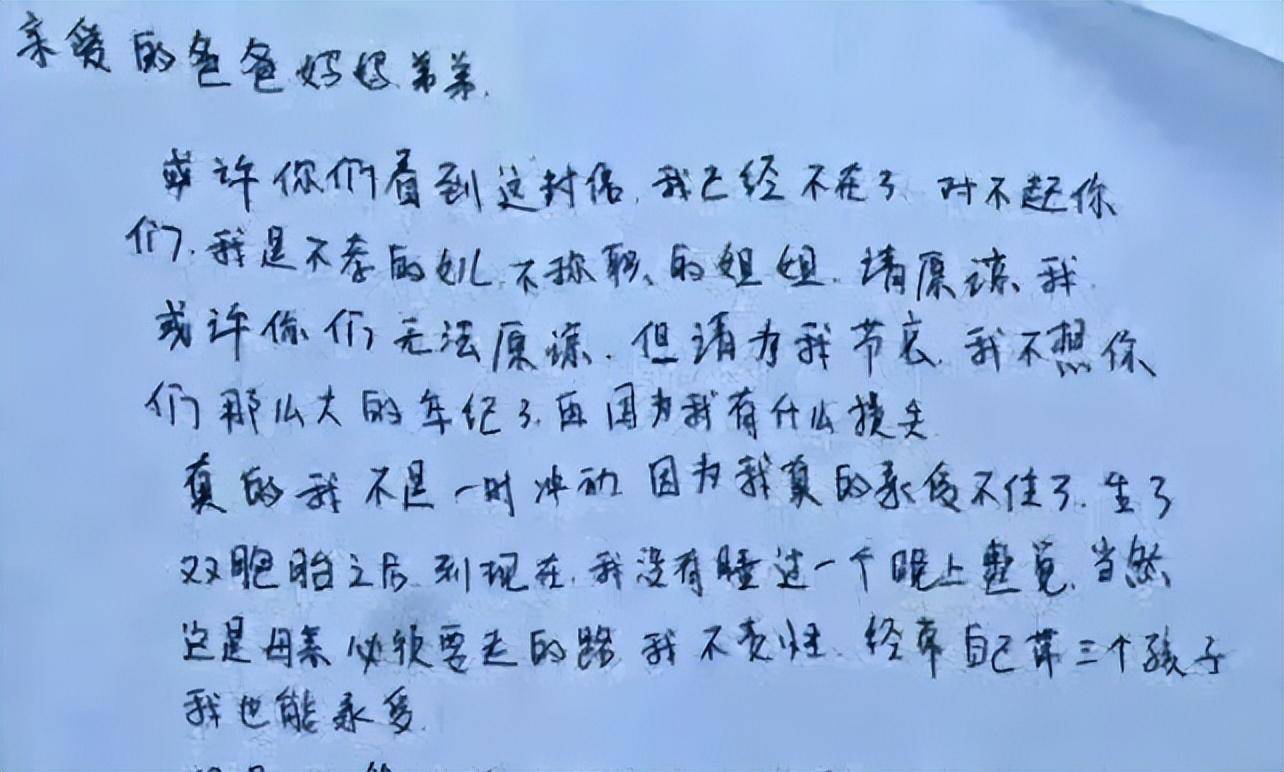 亲爱的爸爸妈妈弟弟.
或许你们看到这封信,我已经不在了 对不起你
们,我是不孝的女儿,不称职的姐姐,请原谅我.
或许你们无法原谅,但请为我节哀,我不想你
们那么大的年纪了,再因为我有什么损失
真的我不是一时冲动 因为我真的承受不住了,生了
双胞胎之后 到现在,我没有睡过一个晚上整觉,当然
这是母亲必须要走的路 我不责怪 经常自己带三个孩子
我也能承受.